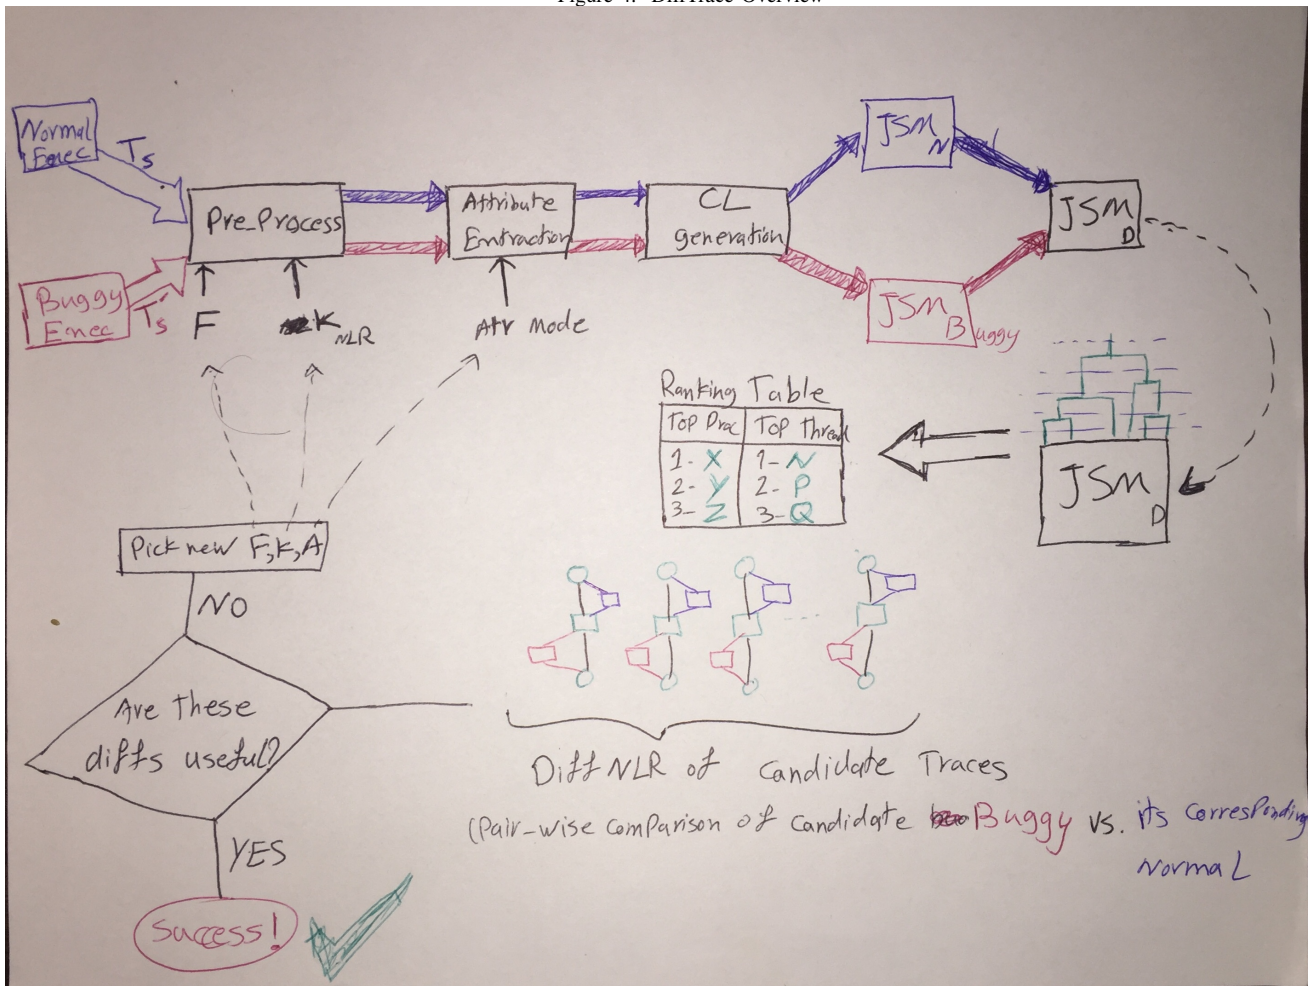 Figure 4. DiffTrace Overview
Normal
Exec
Ts
Pre_Process
Attribute
Extraction
CL
generation
JSM N
JSM D
Buggy
Exec
T's
F
K NLR
Atr mode
JSM Buggy
Ranking Table
Top Proc Top Thread
1- X 1- N
2- Y 2- P
3- Z 3- Q
JSM D
Pick new F,K,A
NO
Are these
diffs useful?
YES
Success!
DiffNLR of Candidate Traces
(Pair-wise comparison of candidate Buggy vs. its corresponding
Normal